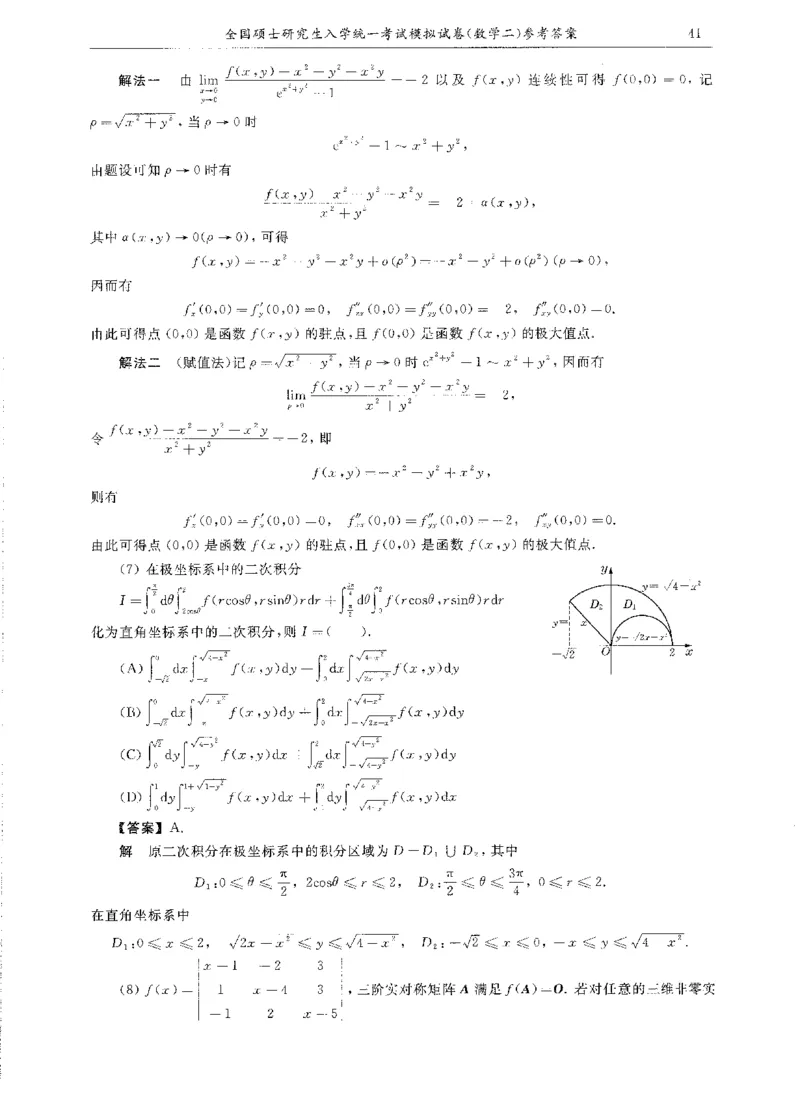 全国硕士研究生入学统一考试模拟试卷(数学二)参考答案 41
解法一 由 lim_{x→0, y→0} (f(x,y)-x²-y²-x²y)/(e^{x²+y²}-1) = -2 以及 f(x,y) 连续性可得 f(0,0)=0, 记
ρ=√(x²+y²), 当 ρ→0 时
e^{x²+y²}-1~x²+y²,
由题设可知 ρ→0 时有
(f(x,y)-x²-y²-x²y)/(x²+y²) = -2+α(x,y),
其中 α(x,y)→0(ρ→0), 可得
f(x,y)=-x²-y²-x²y+o(ρ²)=-x²-y²+o(ρ²)(ρ→0),
因而有
f′ₓ(0,0)=f′_y(0,0)=0, f″ₓₓ(0,0)=f″_yy(0,0)=-2, f″_xy(0,0)=0.
由此可得点 (0,0) 是函数 f(x,y) 的驻点,且 f(0,0) 是函数 f(x,y) 的极大值点.
解法二 (赋值法)记 ρ=√(x²+y²), 当 ρ→0 时 e^{x²+y²}-1~x²+y², 因而有
lim_{ρ→0} (f(x,y)-x²-y²-x²y)/(x²+y²) = -2,
令 (f(x,y)-x²-y²-x²y)/(x²+y²) = -2, 即
f(x,y)=-x²-y²+x²y,
则有
f′ₓ(0,0)=f′_y(0,0)=0, f″ₓₓ(0,0)=f″_yy(0,0)=-2, f″_xy(0,0)=0.
由此可得点 (0,0) 是函数 f(x,y) 的驻点,且 f(0,0) 是函数 f(x,y) 的极大值点.
(7) 在极坐标系中的二次积分
I=∫₀^{π/2}dθ∫_{2cosθ}^{2} f(rcosθ,rsinθ)rdr+∫_{π/2}^{3π/4}dθ∫₀^{2} f(rcosθ,rsinθ)rdr
化为直角坐标系中的二次积分,则 I=( ).
y
y=√4-x²
D₂ D₁
y=-x
y=√2x-x²
-√2 O 2 x
(A) ∫_{-√2}^{0}dx∫_{-x}^{√4-x²} f(x,y)dy+∫₀^{2}dx∫_{√2x-x²}^{√4-x²} f(x,y)dy
(B) ∫_{-√2}^{0}dx∫_{x}^{√4-x²} f(x,y)dy+∫₀^{2}dx∫_{-√2x-x²}^{√4-x²} f(x,y)dy
(C) ∫₀^{√2}dy∫_{-y}^{√4-y²} f(x,y)dx+∫_{√2}^{2}dx∫_{-√4-y²}^{√4-y²} f(x,y)dy
(D) ∫₀^{1}dy∫_{-y}^{1+√1-y²} f(x,y)dx+∫^{2}dy∫ f(x,y)dx
【答案】A.
解 原二次积分在极坐标系中的积分区域为 D=D₁∪D₂, 其中
D₁:0≤θ≤π/2, 2cosθ≤r≤2, D₂:π/2≤θ≤3π/4, 0≤r≤2.
在直角坐标系中
D₁:0≤x≤2, √2x-x²≤y≤√4-x², D₂:-√2≤x≤0, -x≤y≤√4-x².
(8) f(x)=|x-1 -2 3; 1 x-4 3; -1 2 x-5|, 三阶实对称矩阵 A 满足 f(A)=O. 若对任意的三维非零实